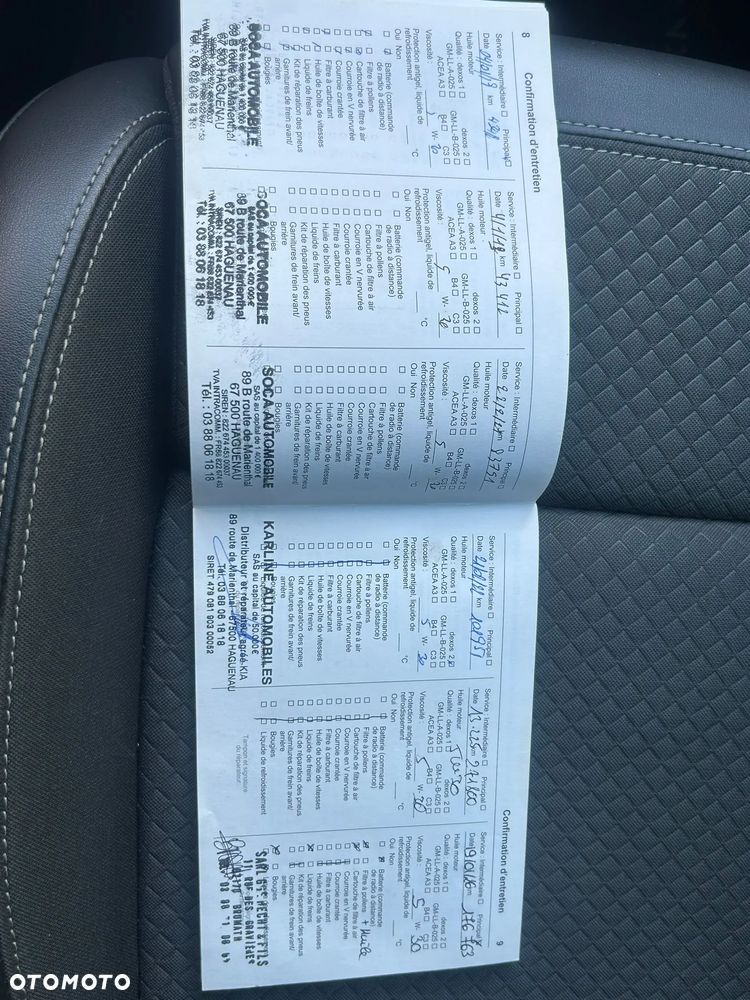 8
Confirmation d'entretien
Service : Intermédiaire Principal
Date km
Huile moteur
Qualité : dexos 1 dexos 2
GM-LL-A-025 GM-LL-B-025
ACEA A3 B4 C3
Viscosité : W- 30
Protection antigel, liquide de
refroidissement °C
Oui Non
Batterie (commande
de radio à distance)
Filtre à pollens
Cartouche de filtre à air
Courroie en V nervurée
Courroie crantée
Filtre à carburant
Huile de boîte de vitesses
Liquide de freins
Kit de réparation des pneus
Garnitures de frein avant/
arrière
Bougies
SOCA AUTOMOBILE
89 B route de Marienthal
67 500 HAGUENAU
Tél. : 03 88 06 18 18
Service : Intermédiaire Principal
Date 4/1/18 km 43 412
Huile moteur
Qualité : dexos 1 dexos 2
GM-LL-A-025 GM-LL-B-025
ACEA A3 B4 C3
Viscosité : 5 W- 30
Protection antigel, liquide de
refroidissement °C
Oui Non
Batterie (commande
de radio à distance)
Filtre à pollens
Cartouche de filtre à air
Courroie en V nervurée
Courroie crantée
Filtre à carburant
Huile de boîte de vitesses
Liquide de freins
Kit de réparation des pneus
Garnitures de frein avant/
arrière
Bougies
SOCA AUTOMOBILE
89 B route de Marienthal
67 500 HAGUENAU
Tél. : 03 88 06 18 18
Service : Intermédiaire Principal
Date km 83751
Huile moteur
Qualité : dexos 1 dexos 2
GM-LL-A-025 GM-LL-B-025
ACEA A3 B4 C3
Viscosité : 5 W- 30
Protection antigel, liquide de
refroidissement °C
Oui Non
Batterie (commande
de radio à distance)
Filtre à pollens
Cartouche de filtre à air
Courroie en V nervurée
Courroie crantée
Filtre à carburant
Huile de boîte de vitesses
Liquide de freins
Kit de réparation des pneus
Garnitures de frein avant/
arrière
Bougies
SOCA AUTOMOBILE
SAS au capital de 1 400 000 €
89 B route de Marienthal
67 500 HAGUENAU
SIREN : 822 674 453 00037
TVA INTRACOMM. : FR86 822 674 453
Tél. : 03 88 06 18 18
9
Confirmation d'entretien
Service : Intermédiaire Principal
Date km 101951
Huile moteur
Qualité : dexos 1 dexos 2
GM-LL-A-025 GM-LL-B-025
ACEA A3 B4 C3
Viscosité : 5 W- 30
Protection antigel, liquide de
refroidissement °C
Oui Non
Batterie (commande
de radio à distance)
Filtre à pollens
Cartouche de filtre à air
Courroie en V nervurée
Courroie crantée
Filtre à carburant
Huile de boîte de vitesses
Liquide de freins
Kit de réparation des pneus
Garnitures de frein avant/
arrière
KARLINE AUTOMOBILES
SAS au capital de 50.000€
Distributeur et réparateur agréé KIA
89 route de Marienthal 67500 HAGUENAU
Tél. 03 88 06 18 18
SIRET 478 081 903 00052
Service : Intermédiaire Principal
Date km
Huile moteur
Qualité : dexos 1 dexos 2
GM-LL-A-025 GM-LL-B-025
ACEA A3 B4 C3
Viscosité : 5 W- 30
Protection antigel, liquide de
refroidissement °C
Oui Non
Batterie (commande
de radio à distance)
Filtre à pollens
Cartouche de filtre à air
Courroie en V nervurée
Courroie crantée
Filtre à carburant
Huile de boîte de vitesses
Liquide de freins
Kit de réparation des pneus
Garnitures de frein avant/
arrière
Bougies
Liquide de refroidissement
Tampon et signature
du réparateur
Service : Intermédiaire Principal
Date km 176 763
Huile moteur
Qualité : dexos 1 dexos 2
GM-LL-A-025 GM-LL-B-025
ACEA A3 B4 C3
Viscosité : 5 W- 30
Protection antigel, liquide de
refroidissement °C
Oui Non
Batterie (commande
de radio à distance)
Filtre à pollens + Huile
Cartouche de filtre à air
Courroie en V nervurée
Courroie crantée
Filtre à carburant
Huile de boîte de vitesses
Liquide de freins
Kit de réparation des pneus
Garnitures de frein avant/
arrière
Bougies
HECHT & FILS
BRUMATH
OTOMOTO